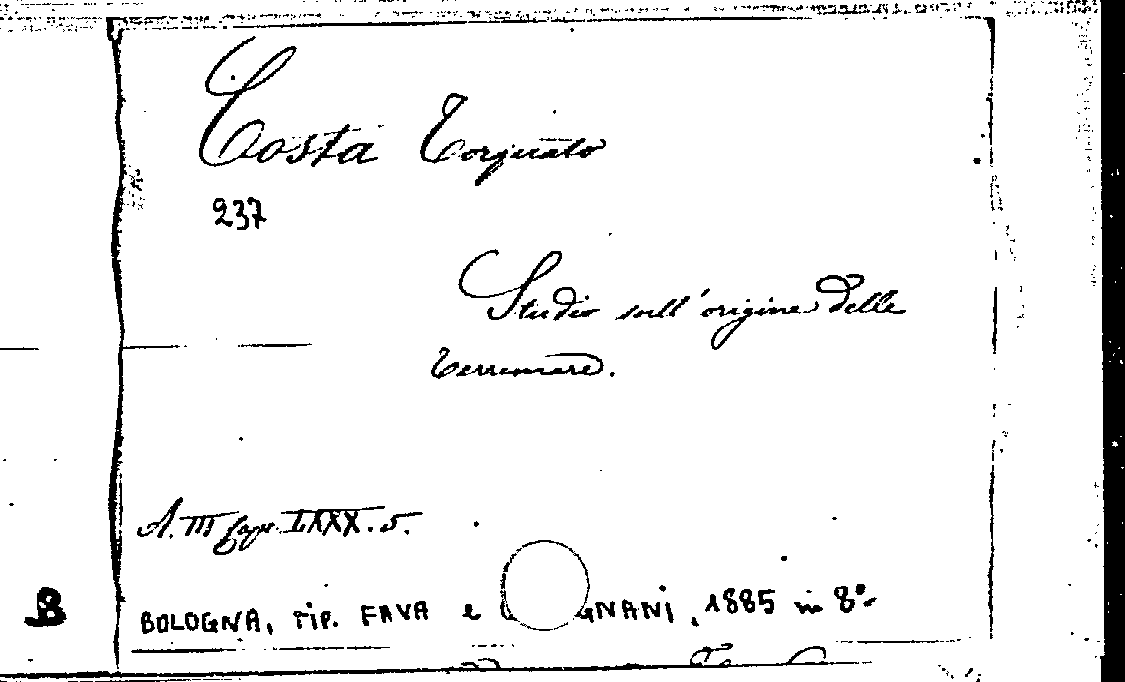 Costa Torquato
237
Studio sull'origine delle
terremare.
A. III caps. LXXX. 5.
B
BOLOGNA, TIP. FAVA e G GNANI, 1885 in 8º